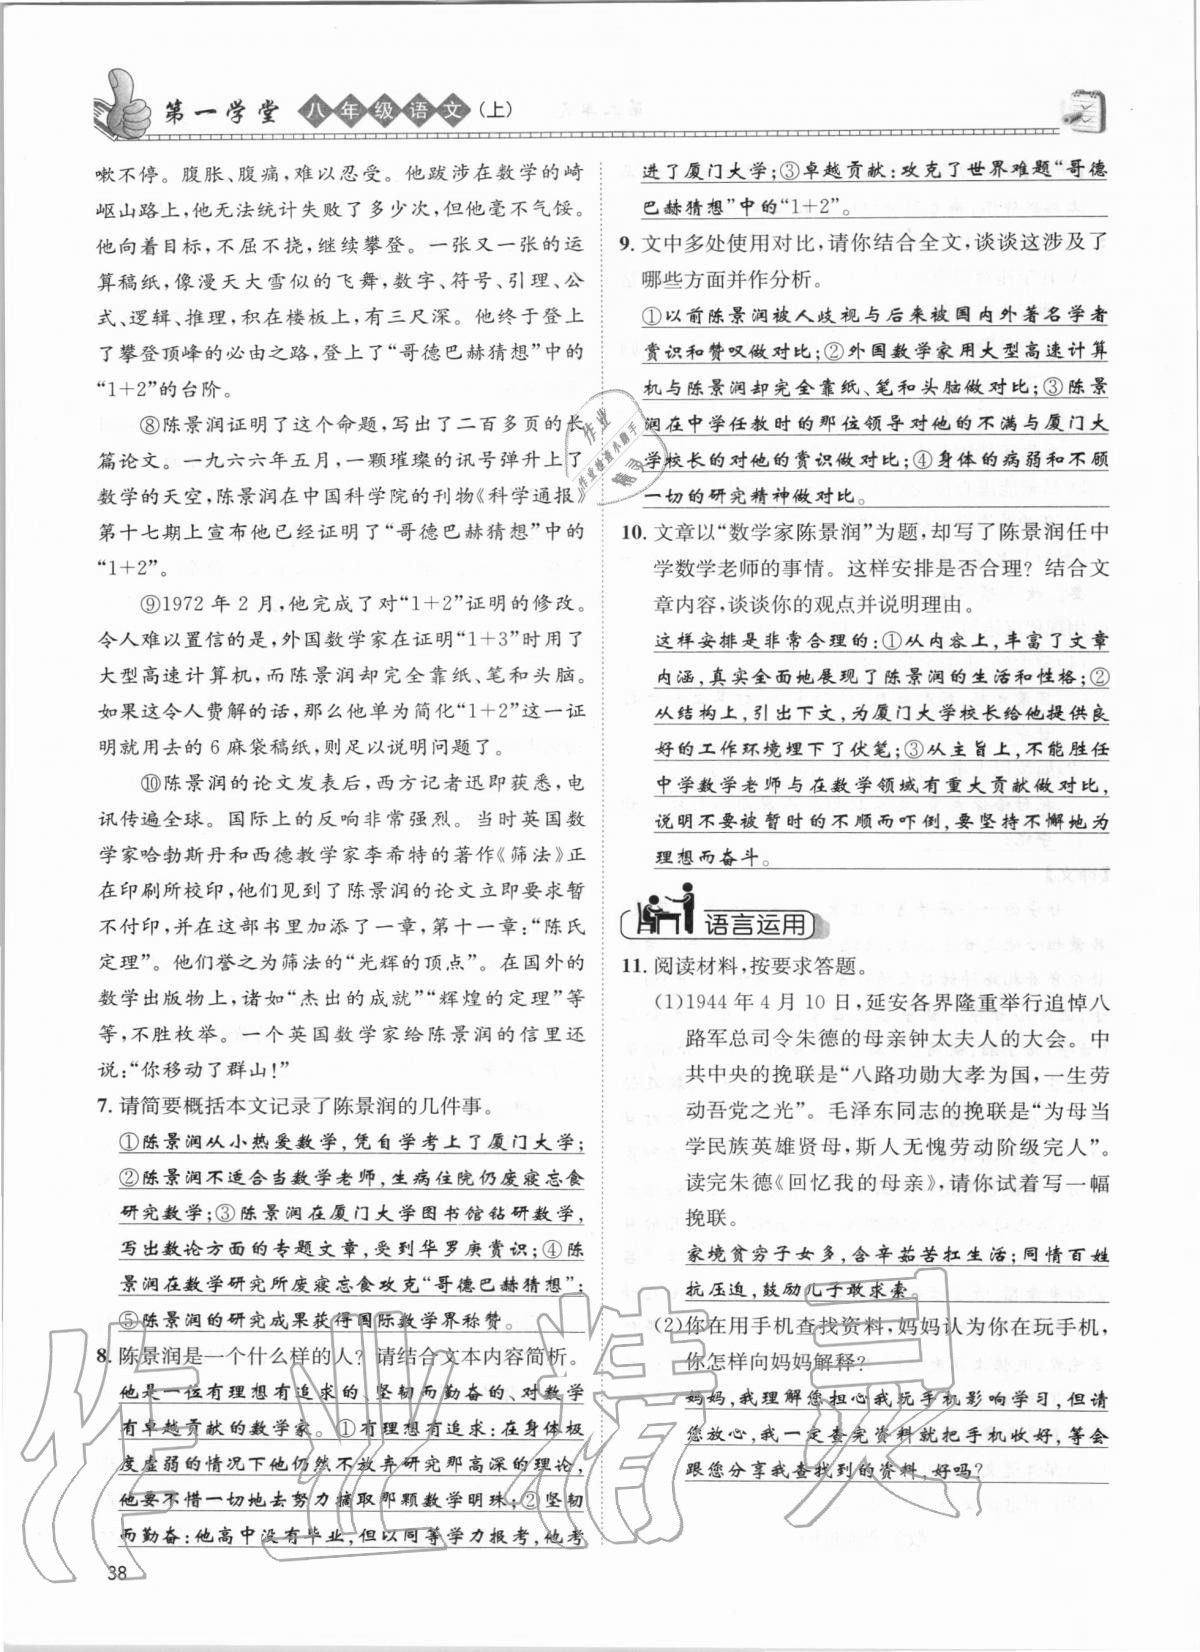 第一学堂 八年级语文(上)
嗽不停。腹胀、腹痛,难以忍受。他跋涉在数学的崎
岖山路上,他无法统计失败了多少次,但他毫不气馁。
他向着目标,不屈不挠,继续攀登。一张又一张的运
算稿纸,像漫天大雪似的飞舞,数字、符号、引理、公
式、逻辑、推理,积在楼板上,有三尺深。他终于登上
了攀登顶峰的必由之路,登上了“哥德巴赫猜想”中的
“1+2”的台阶。
⑧陈景润证明了这个命题,写出了二百多页的长
篇论文。一九六六年五月,一颗璀璨的讯号弹升上了
数学的天空,陈景润在中国科学院的刊物《科学通报》
第十七期上宣布他已经证明了“哥德巴赫猜想”中的
“1+2”。
⑨1972年2月,他完成了对“1+2”证明的修改。
令人难以置信的是,外国数学家在证明“1+3”时用了
大型高速计算机,而陈景润却完全靠纸、笔和头脑。
如果这令人费解的话,那么他单为简化“1+2”这一证
明就用去的6麻袋稿纸,则足以说明问题了。
⑩陈景润的论文发表后,西方记者迅即获悉,电
讯传遍全球。国际上的反响非常强烈。当时英国数
学家哈勃斯丹和西德教学家李希特的著作《筛法》正
在印刷所校印,他们见到了陈景润的论文立即要求暂
不付印,并在这部书里加添了一章,第十一章:“陈氏
定理”。他们誉之为筛法的“光辉的顶点”。在国外的
数学出版物上,诸如“杰出的成就”“辉煌的定理”等
等,不胜枚举。一个英国数学家给陈景润的信里还
说:“你移动了群山!”
7. 请简要概括本文记录了陈景润的几件事。
①陈景润从小热爱数学,凭自学考上了厦门大学;
②陈景润不适合当数学老师,生病住院仍废寝忘食
研究数学;③陈景润在厦门大学图书馆钻研数学,
写出数论方面的专题文章,受到华罗庚赏识;④陈
景润在数学研究所废寝忘食攻克“哥德巴赫猜想”;
⑤陈景润的研究成果获得国际数学界称赞。
8. 陈景润是一个什么样的人?请结合文本内容简析。
他是一位有理想有追求的、坚韧而勤奋的、对数学
有卓越贡献的数学家。①有理想有追求:在身体极
度虚弱的情况下他仍然不放弃研究那高深的理论,
他要不惜一切地去努力摘取那颗数学明珠;②坚韧
而勤奋:他高中没有毕业,但以同等学力报考,他考
38
进了厦门大学;③卓越贡献:攻克了世界难题“哥德
巴赫猜想”中的“1+2”。
9. 文中多处使用对比,请你结合全文,谈谈这涉及了
哪些方面并作分析。
①以前陈景润被人歧视与后来被国内外著名学者
赏识和赞叹做对比;②外国数学家用大型高速计算
机与陈景润却完全靠纸、笔和头脑做对比;③陈景
润在中学任教时的那位领导对他的不满与厦门大
学校长的对他的赏识做对比;④身体的病弱和不顾
一切的研究精神做对比。
10. 文章以“数学家陈景润”为题,却写了陈景润任中
学数学老师的事情。这样安排是否合理?结合文
章内容,谈谈你的观点并说明理由。
这样安排是非常合理的:①从内容上,丰富了文章
内涵,真实全面地展现了陈景润的生活和性格;②
从结构上,引出下文,为厦门大学校长给他提供良
好的工作环境埋下了伏笔;③从主旨上,不能胜任
中学数学老师与在数学领域有重大贡献做对比,
说明不要被暂时的不顺而吓倒,要坚持不懈地为
理想而奋斗。
语言运用
11. 阅读材料,按要求答题。
(1)1944年4月10日,延安各界隆重举行追悼八
路军总司令朱德的母亲钟太夫人的大会。中
共中央的挽联是“八路功勋大孝为国,一生劳
动吾党之光”。毛泽东同志的挽联是“为母当
学民族英雄贤母,斯人无愧劳动阶级完人”。
读完朱德《回忆我的母亲》,请你试着写一幅
挽联。
家境贫穷子女多,含辛茹苦扛生活;同情百姓
抗压迫,鼓励儿子敢求索。
(2)你在用手机查找资料,妈妈认为你在玩手机,
你怎样向妈妈解释?
妈妈,我理解您担心我玩手机影响学习,但请
您放心,我一定查完资料就把手机收好,等会
跟您分享我查找到的资料,好吗?
作业精灵